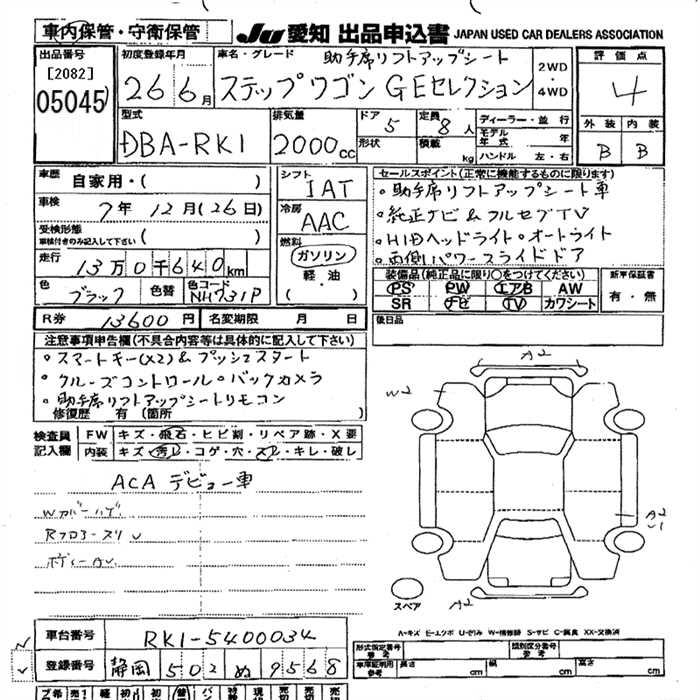 車内保管・守衛保管
JU 愛知 出品申込書 JAPAN USED CAR DEALERS ASSOCIATION
出品番号
[2082]
05045
初度登録年月
26年6月
車名・グレード
助手席リフトアップシート
ステップワゴン GEセレクション
2WD
・
4WD
評価点
4
外装 内装
B B
型式
DBA-RK1
排気量
2000cc
ドア 5
形状
定員 8人
積載 kg
ディーラー・並行
モデル年式 年
ハンドル 左・右
車歴
自家用・( )
車検
7年12月(26日)
受検形態
車検付きのみ記入して下さい
( )
走行
13万0千640km
色
ブラック
色替
色コード
NH731P
シフト
IAT
冷房
AAC
燃料
ガソリン
・
軽・油
( )
セールスポイント(正常に機能するものに限ります)
・助手席リフトアップシート車
・純正ナビ&フルセグTV
・HIDヘッドライト・オートライト
・両側パワースライドドア
装備品(純正品に限り○をつけてください)
PS PW エアB AW
SR ナビ TV カワシート
新車保証書
有・無
R券 13600円 名変期限 月 日
後日品
注意事項申告欄(不具合内容等は具体的に記入して下さい)
・スマートキー(x2)&プッシュスタート
・クルーズコントロール・バックカメラ
・助手席リフトアップシートリモコン
修復歴 有(箇所 )
検査員
記入欄
FW キズ・飛石・ヒビ割・リペア跡・X要
内装 キズ・汚レ・コゲ・穴・スレ・キレ・破レ
ACAデビュー車
A2
W2
A2
A2
スペア
A=キズ E=エクボ U=凹み W=補修跡 S=サビ C=腐食 XX=交換済
車台番号
RK1-5400034
登録番号
静岡 502 ぬ 9568
形式指定番号
参考
類別区分番号
参考
車庫証明用
参考
長さ cm
幅 cm
高さ cm